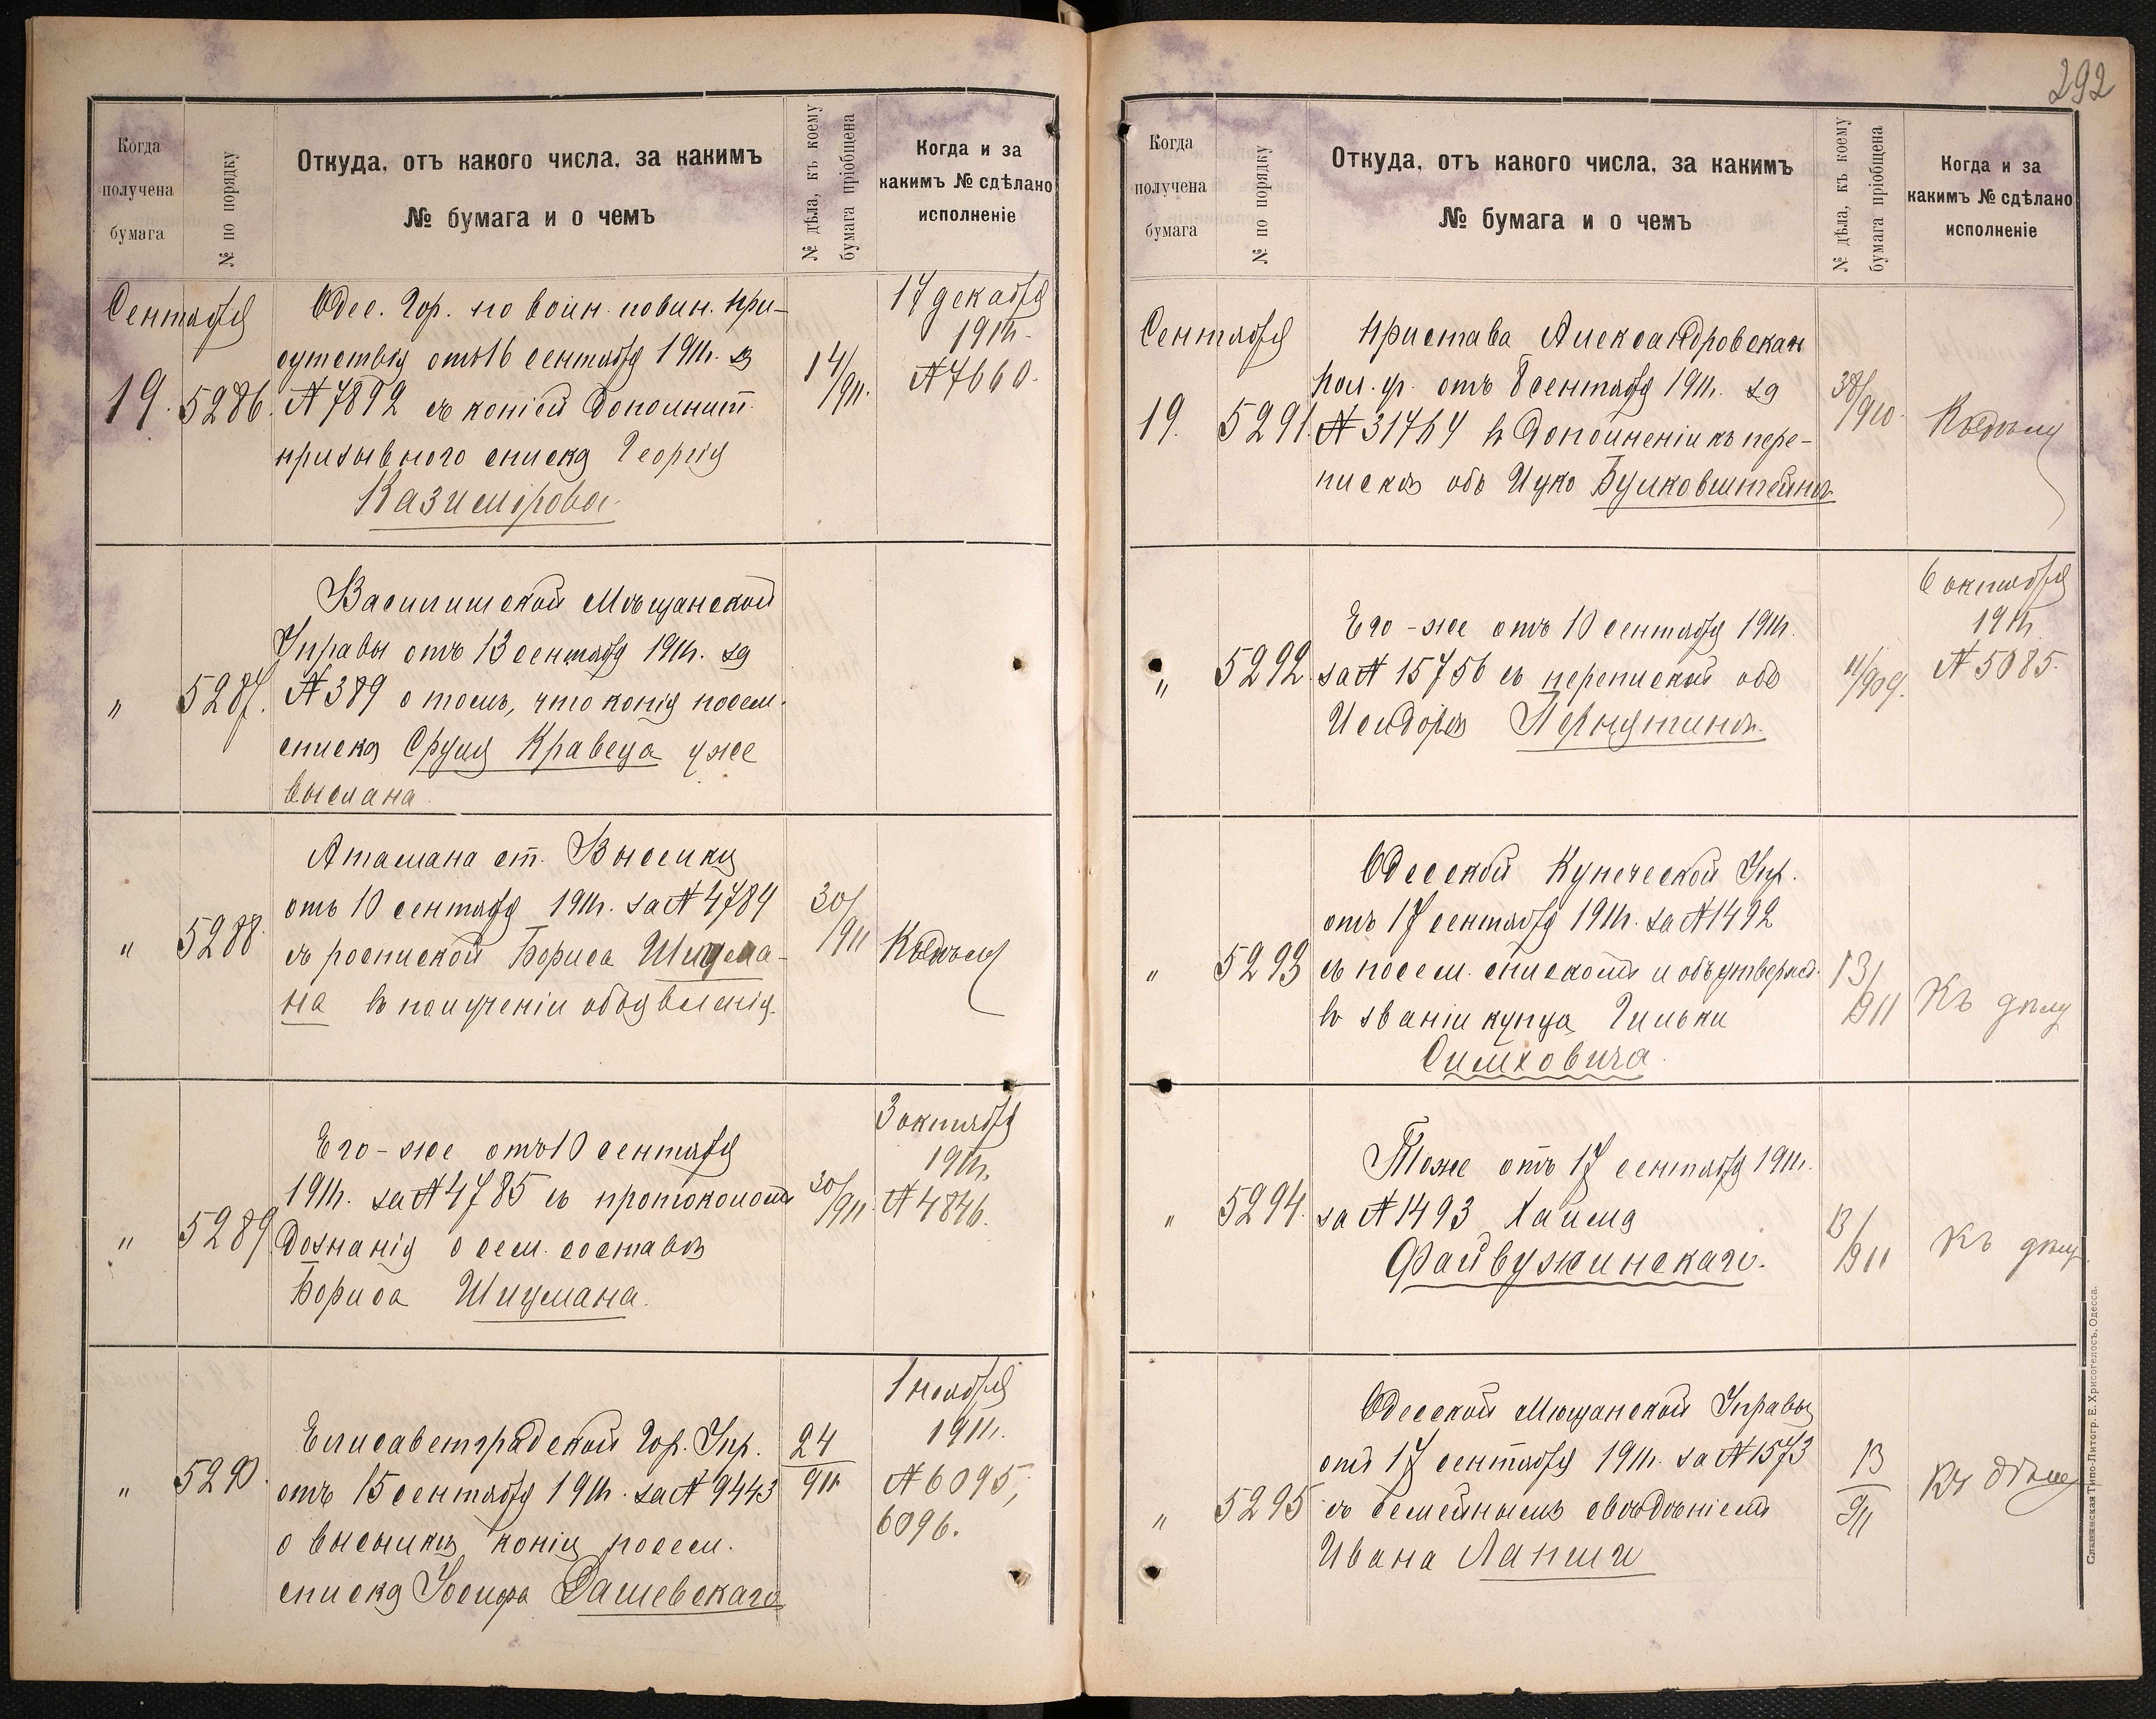 292
Когда
получена
бумага
№ по порядку
Откуда, отъ какого числа, за какимъ
№ бумага и о чемъ
№ дѣла, къ коему
бумага пріобщена
Когда и за
какимъ № сдѣлано
исполненіе
Сентября
19. 5286.
Одес. Гор. по воин. повин. при-
сутствія отъ 16 сентября 1911г. за
№ 7892 съ копіей дополнит.
призывного списка Георгія
Казимірова.
14/911.
17 декабря
1911г.
№ 7660.
" 5287.
Василишской Мѣщанской
Управы отъ 13 сентября 1911г. за
№ 389 о томъ, что копія посем.
списка Сруля Кравеца уже
выслана.
" 5288.
Атамана ст.
отъ 10 сентября 1911г. за № 4784
съ роспиской Бориса Шицма-
на въ полученіи объявленія.
30/911
Къ дѣлу
" 5289.
Его-же отъ 10 сентября
1911г. за № 4785 съ протоколомъ
дознанія о сем. составѣ
Бориса Шицмана.
30/911.
3 октября
1911г.
№ 4846.
" 5290.
Елисаветградской Гор. Упр.
отъ 15 сентября 1911г. за № 9443
о высылкѣ копіи посем.
списка Іосифа Дашевскаго
24/911
1 ноября
1911г.
№ 6095,
6096.
Когда
получена
бумага
№ по порядку
Откуда, отъ какого числа, за какимъ
№ бумага и о чемъ
№ дѣла, къ коему
бумага пріобщена
Когда и за
какимъ № сдѣлано
исполненіе
Сентября
19. 5291.
Пристава Александровскаг
пол. уч. отъ 8 сентября 1911г. за
№ 31764 въ дополненіи къ пере-
пискѣ объ Ицко
38/910.
Къ дѣлу
" 5292.
Его-же отъ 10 сентября 1911г.
за № 15756 съ перепиской объ
Исидорѣ
11/909.
6 октября
1911г.
№ 5085.
" 5293
Одесской Купеческой Упр.
отъ 17 сентября 1911г. за № 1492
съ посем. спискомъ и объ утвержд.
въ званіи купца Гильки
Симховича.
13/911
Къ дѣлу
" 5294.
Тоже отъ 17 сентября 1911г.
за № 1493 Хаима
Файвужинскаго.
13/911
Къ дѣлу
" 5295
Одесской Мѣщанской Управы
отъ 17 сентября 1911г. за № 1573
съ семейнымъ свѣдѣніемъ
Ивана Лапши
13/911
Къ дѣлу
Славянская Типо-Литогр. Е. Хрисогелосъ, Одесса.